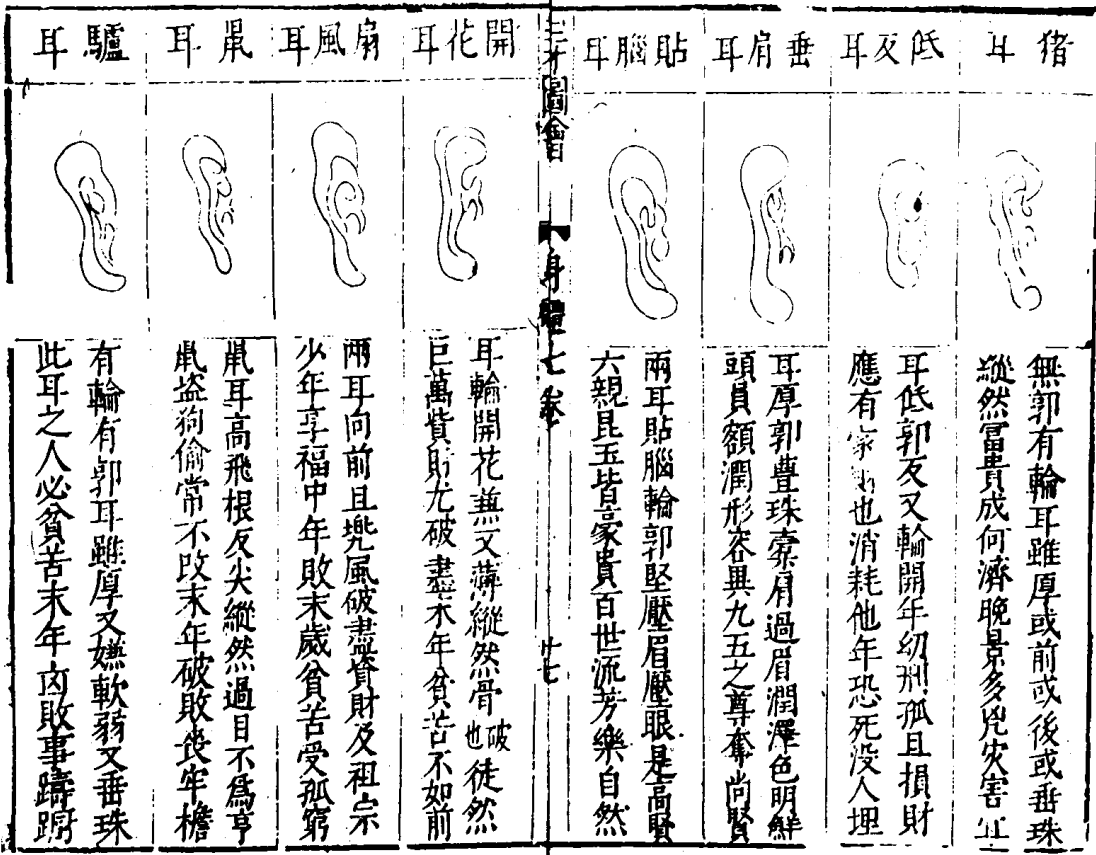 猪耳
無郭有輪耳雖厚或前或後或垂珠
縱然富貴成何濟晚景多凶灾害
低反耳
耳低郭反又輪開年幼刑孤且損財
應有家也消耗他年恐死没人埋
垂肩耳
耳厚郭豊珠肩過眉潤澤色明鮮
頭員額濶形容異九五之尊奪尚賢
貼腦耳
兩耳貼腦輪郭堅壓眉壓眼是高賢
六親昆玉皆豪貴百世流芳樂自然
三才圖會
身體七卷
廿七
開花耳
耳輪開花兼又薄縱然骨破也徒然
巨萬貲財尤破盡末年貧苦不如前
扇風耳
兩耳向前且兠風破盡資財及祖宗
少年享福中年敗末歲貧苦受孤窮
鼠耳
鼠耳高飛根反尖縱然過目不為亨
鼠盗狗偷常不改末年破敗丧牢檐
驢耳
有輪有郭耳雖厚又嫌軟弱又垂珠
此耳之人必貧苦末年凶敗事躊躇